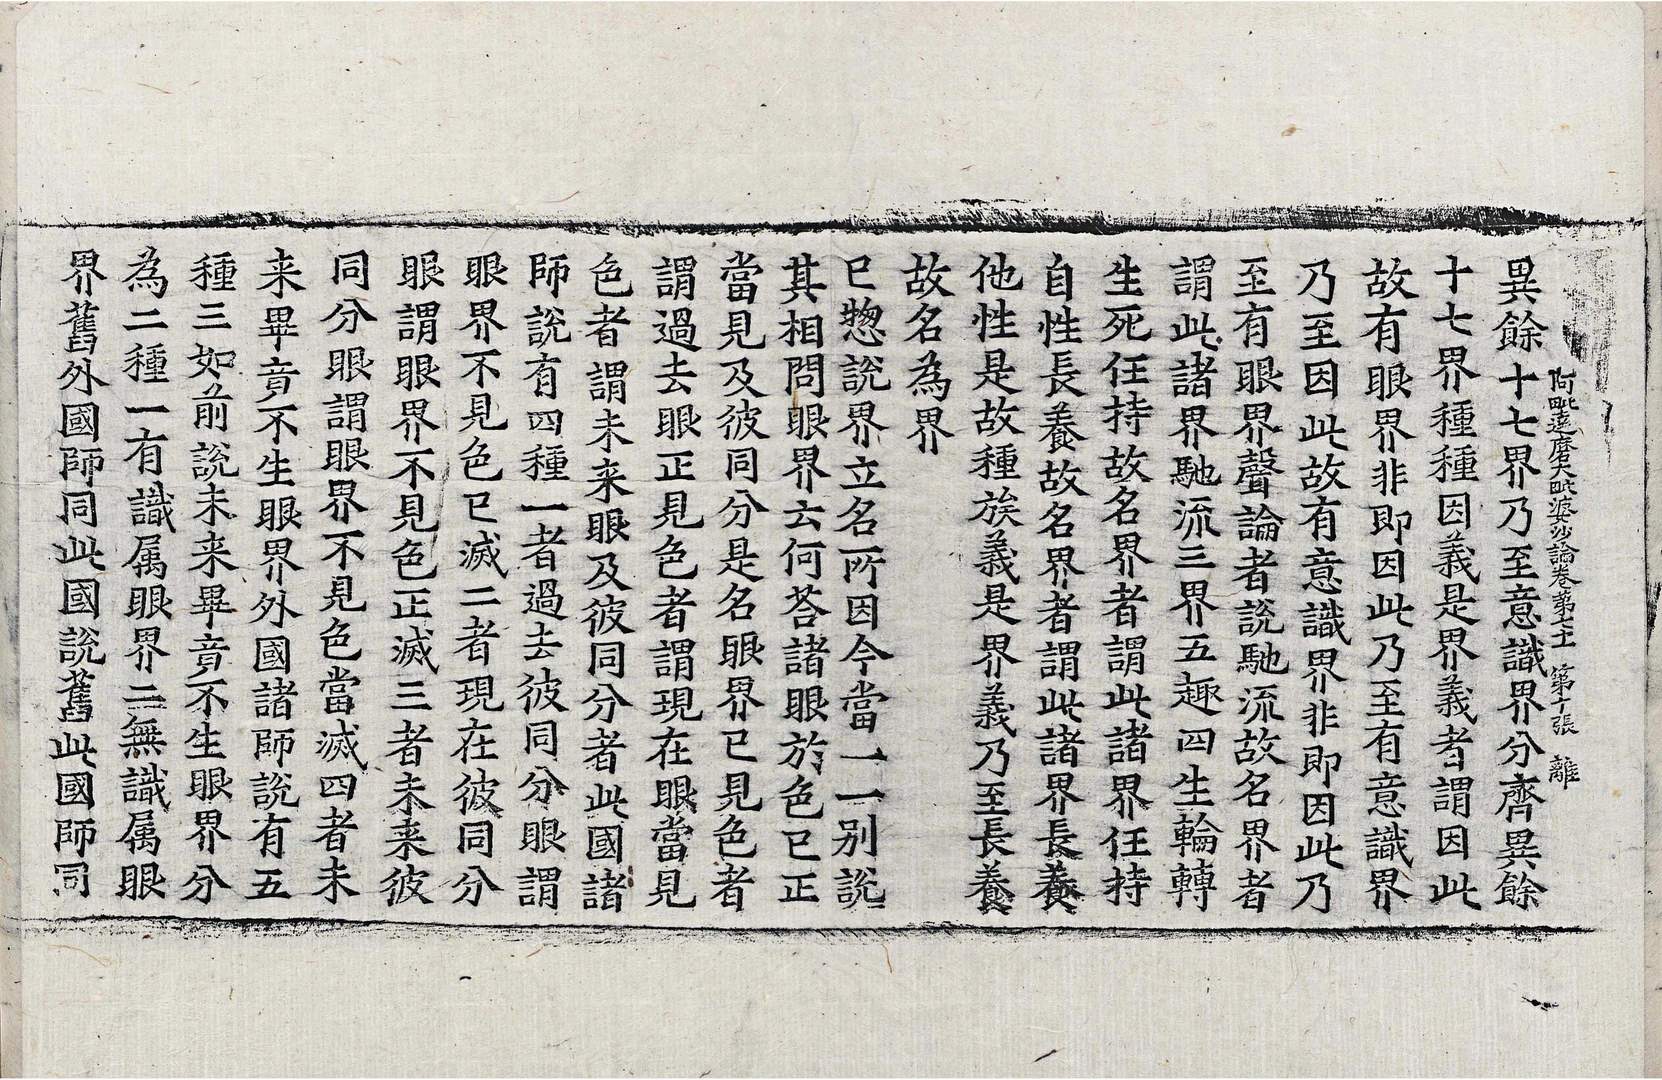 阿毗達磨大毗婆沙論卷第七十一 第十張 離
異餘十七界乃至意識界分齊異餘
十七界種種因義是界義者謂因此
故有眼界非即因此乃至有意識界
乃至因此故有意識界非即因此乃
至有眼界聲論者說馳流故名界者
謂此諸界馳流三界五趣四生輪轉
生死任持故名界者謂此諸界任持
自性長養故名界者謂此諸界長養
他性是故種族義是界義乃至長養
故名為界
已惣說界立名所因今當一一別說
其相問眼界云何荅諸眼於色已正
當見及彼同分是名眼界已見色者
謂過去眼正見色者謂現在眼當見
色者謂未来眼及彼同分者此國諸
師說有四種一者過去彼同分眼謂
眼界不見色已滅二者現在彼同分
眼謂眼界不見色正滅三者未来彼
同分眼謂眼界不見色當滅四者未
来畢竟不生眼界外國諸師說有五
種三如前說未来畢竟不生眼界分
為二種一有識属眼界二無識属眼
界舊外國師同此國說舊此國師同